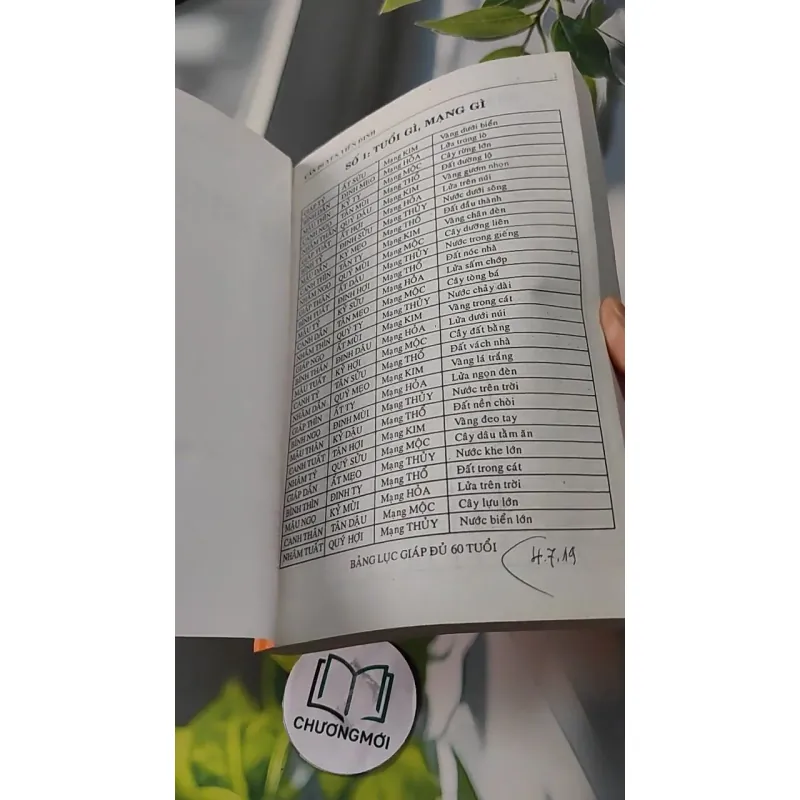 SỐ 1: TUỔI GÌ, MẠNG GÌ
GIÁP TÝ ẤT SỬU Mạng KIM Vàng dưới biển
ĐINH MẸO Mạng HỎA Lửa trong lò
Mạng MỘC Cây rừng lớn
TÂN MÙI Mạng THỔ Đất đường lộ
QUÝ DẬU Mạng KIM Vàng gươm nhọn
ẤT HỢI Mạng HỎA Lửa trên núi
ĐINH SỬU Mạng THỦY Nước dưới sông
KỶ MẸO Mạng THỔ Đất đầu thành
TÂN TỴ Mạng KIM Vàng chân đèn
QUÝ MÙI Mạng MỘC Cây dương liễu
ẤT DẬU Mạng THỦY Nước trong giếng
ĐINH HỢI Mạng THỔ Đất nóc nhà
KỶ SỬU Mạng HỎA Lửa sấm chớp
CANH DẦN TÂN MẸO Mạng MỘC Cây tòng bá
NHÂM THÌN QUÝ TỴ Mạng THỦY Nước chảy dài
GIÁP NGỌ ẤT MÙI Mạng KIM Vàng trong cát
BÍNH THÂN ĐINH DẬU Mạng HỎA Lửa dưới núi
MẬU TUẤT KỶ HỢI Mạng MỘC Cây đất bằng
CANH TÝ TÂN SỬU Mạng THỔ Đất vách nhà
NHÂM DẦN QUÝ MẸO Mạng KIM Vàng lá trắng
GIÁP THÌN ẤT TỴ Mạng HỎA Lửa ngọn đèn
BÍNH NGỌ ĐINH MÙI Mạng THỦY Nước trên trời
MẬU THÂN KỶ DẬU Mạng THỔ Đất nền chòi
CANH TUẤT TÂN HỢI Mạng KIM Vàng đeo tay
NHÂM TÝ QUÝ SỬU Mạng MỘC Cây dâu tằm ăn
GIÁP DẦN ẤT MẸO Mạng THỦY Nước khe lớn
BÍNH THÌN ĐINH TỴ Mạng THỔ Đất trong cát
MẬU NGỌ KỶ MÙI Mạng HỎA Lửa trên trời
CANH THÂN TÂN DẬU Mạng MỘC Cây lựu lớn
NHÂM TUẤT QUÝ HỢI Mạng THỦY Nước biển lớn
BẢNG LỤC GIÁP ĐỦ 60 TUỔI
4.7.19
CHƯƠNGMỚI